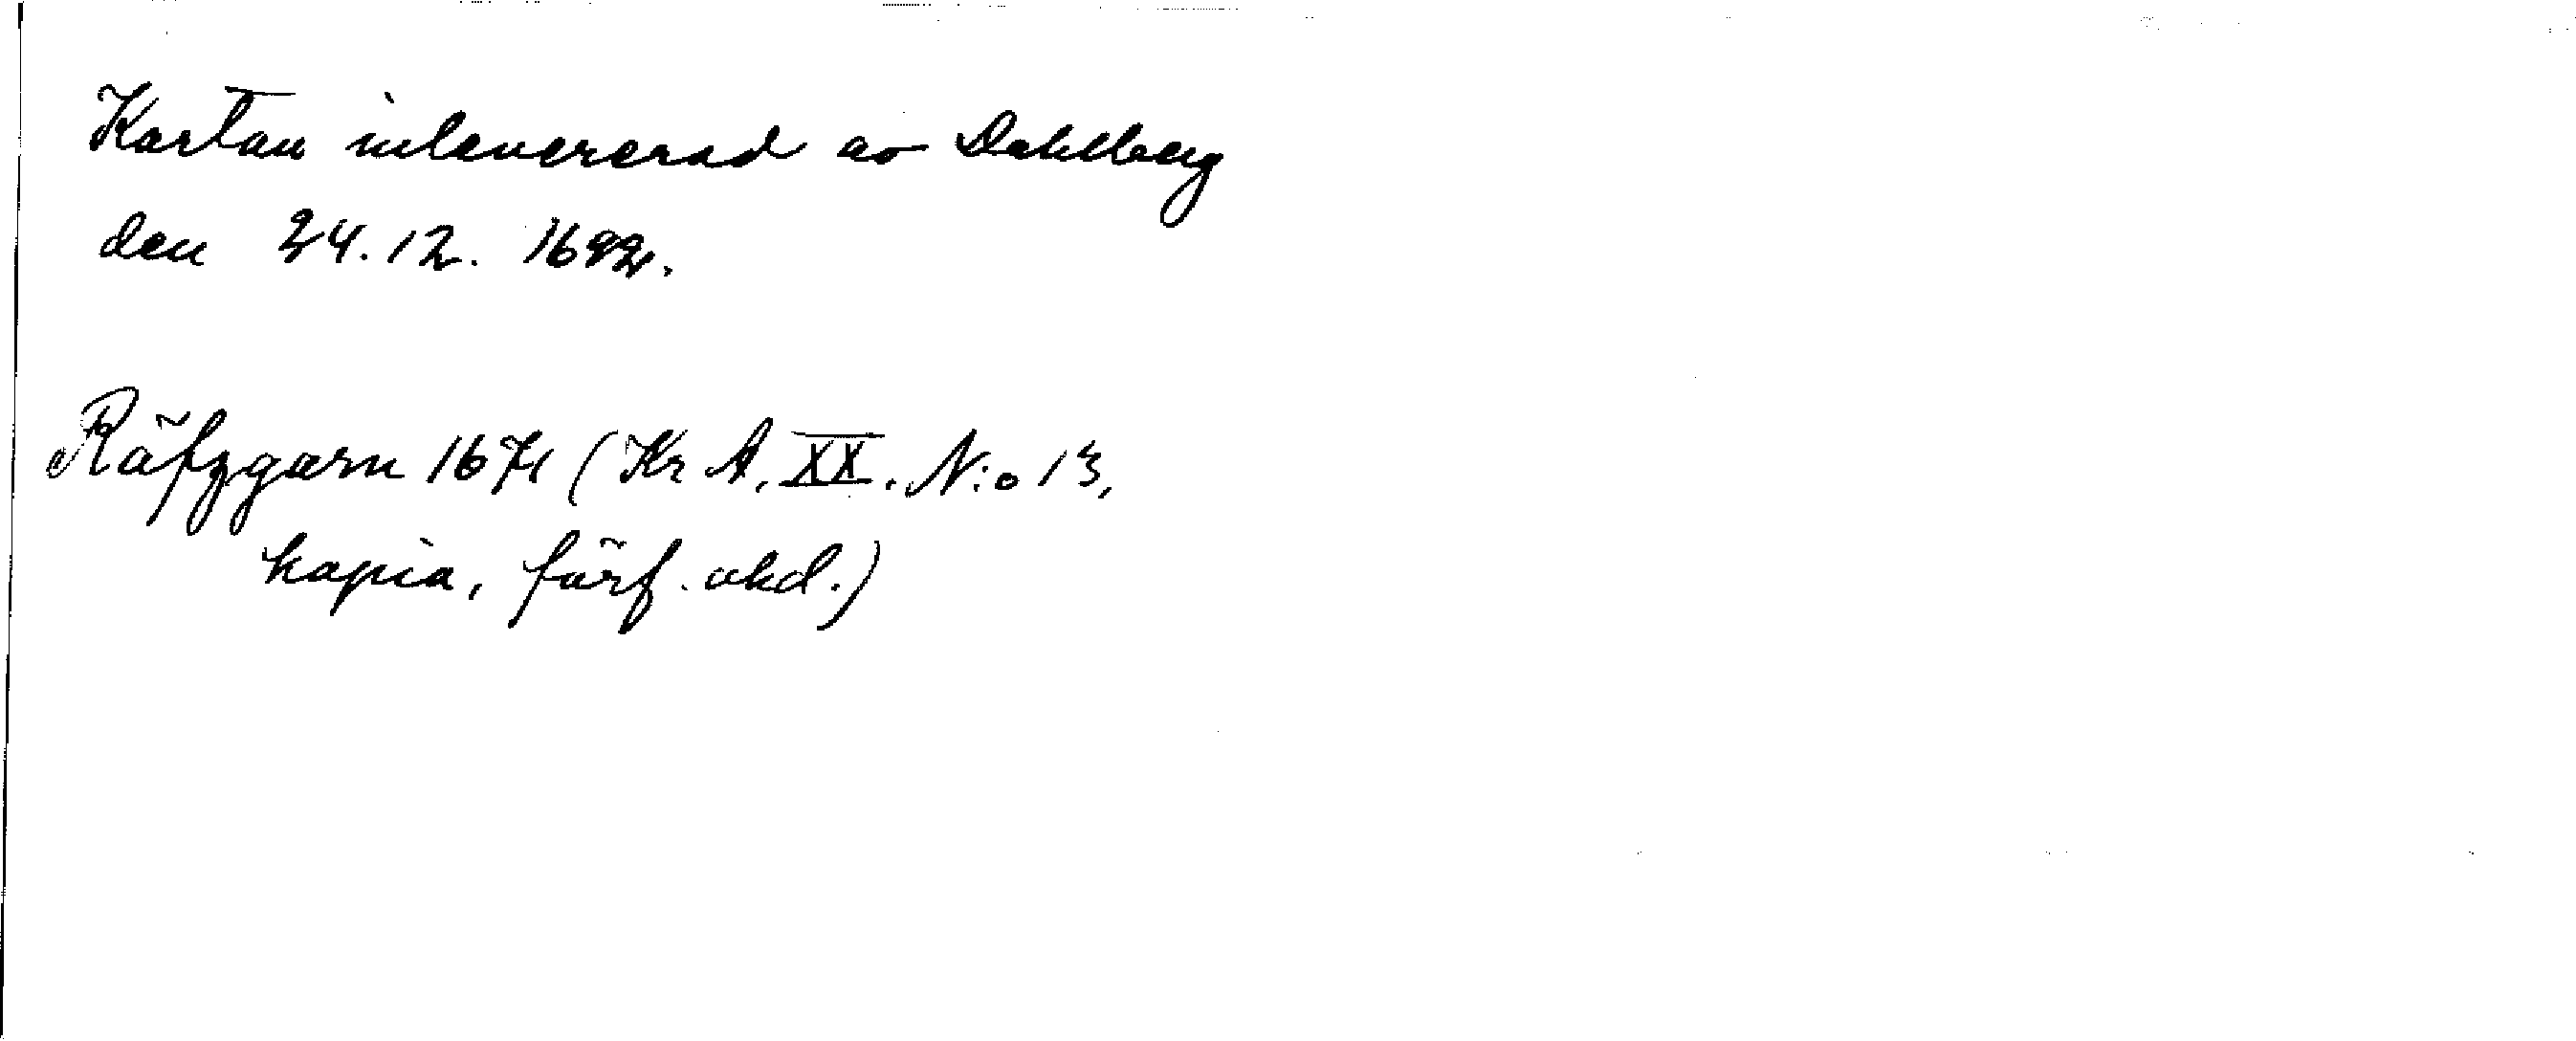 Kartan inlevererad av Dahlberg
den 24.12. 1692.
Räfzgarn 1671 (Kr A, XX. N:o 13,
kopia, förf. okd.)